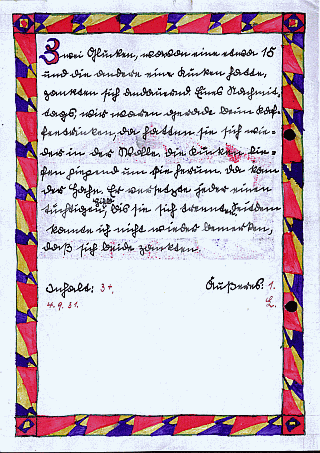 Zwei Glucken, wovon eine etwa 15
und die andere eine Kücken hatte,
zankten sich andauernd. Eines Nachmit-
tags, wir waren gerade beim Kaf-
feetrinken, da hatten sie sich wie-
der in der Wolle. Die Kücken lie-
fen piepend um sie herum. Da kam
der Hahn. Er versetzte jeder einen
tüchtigen Hieb, bis sie sich trennten. Seitdem
konnte ich nicht wieder bemerken,
daß sich beide zankten.
Inhalt: 3+. Äußeres: 1.
4. 9. 31. L.